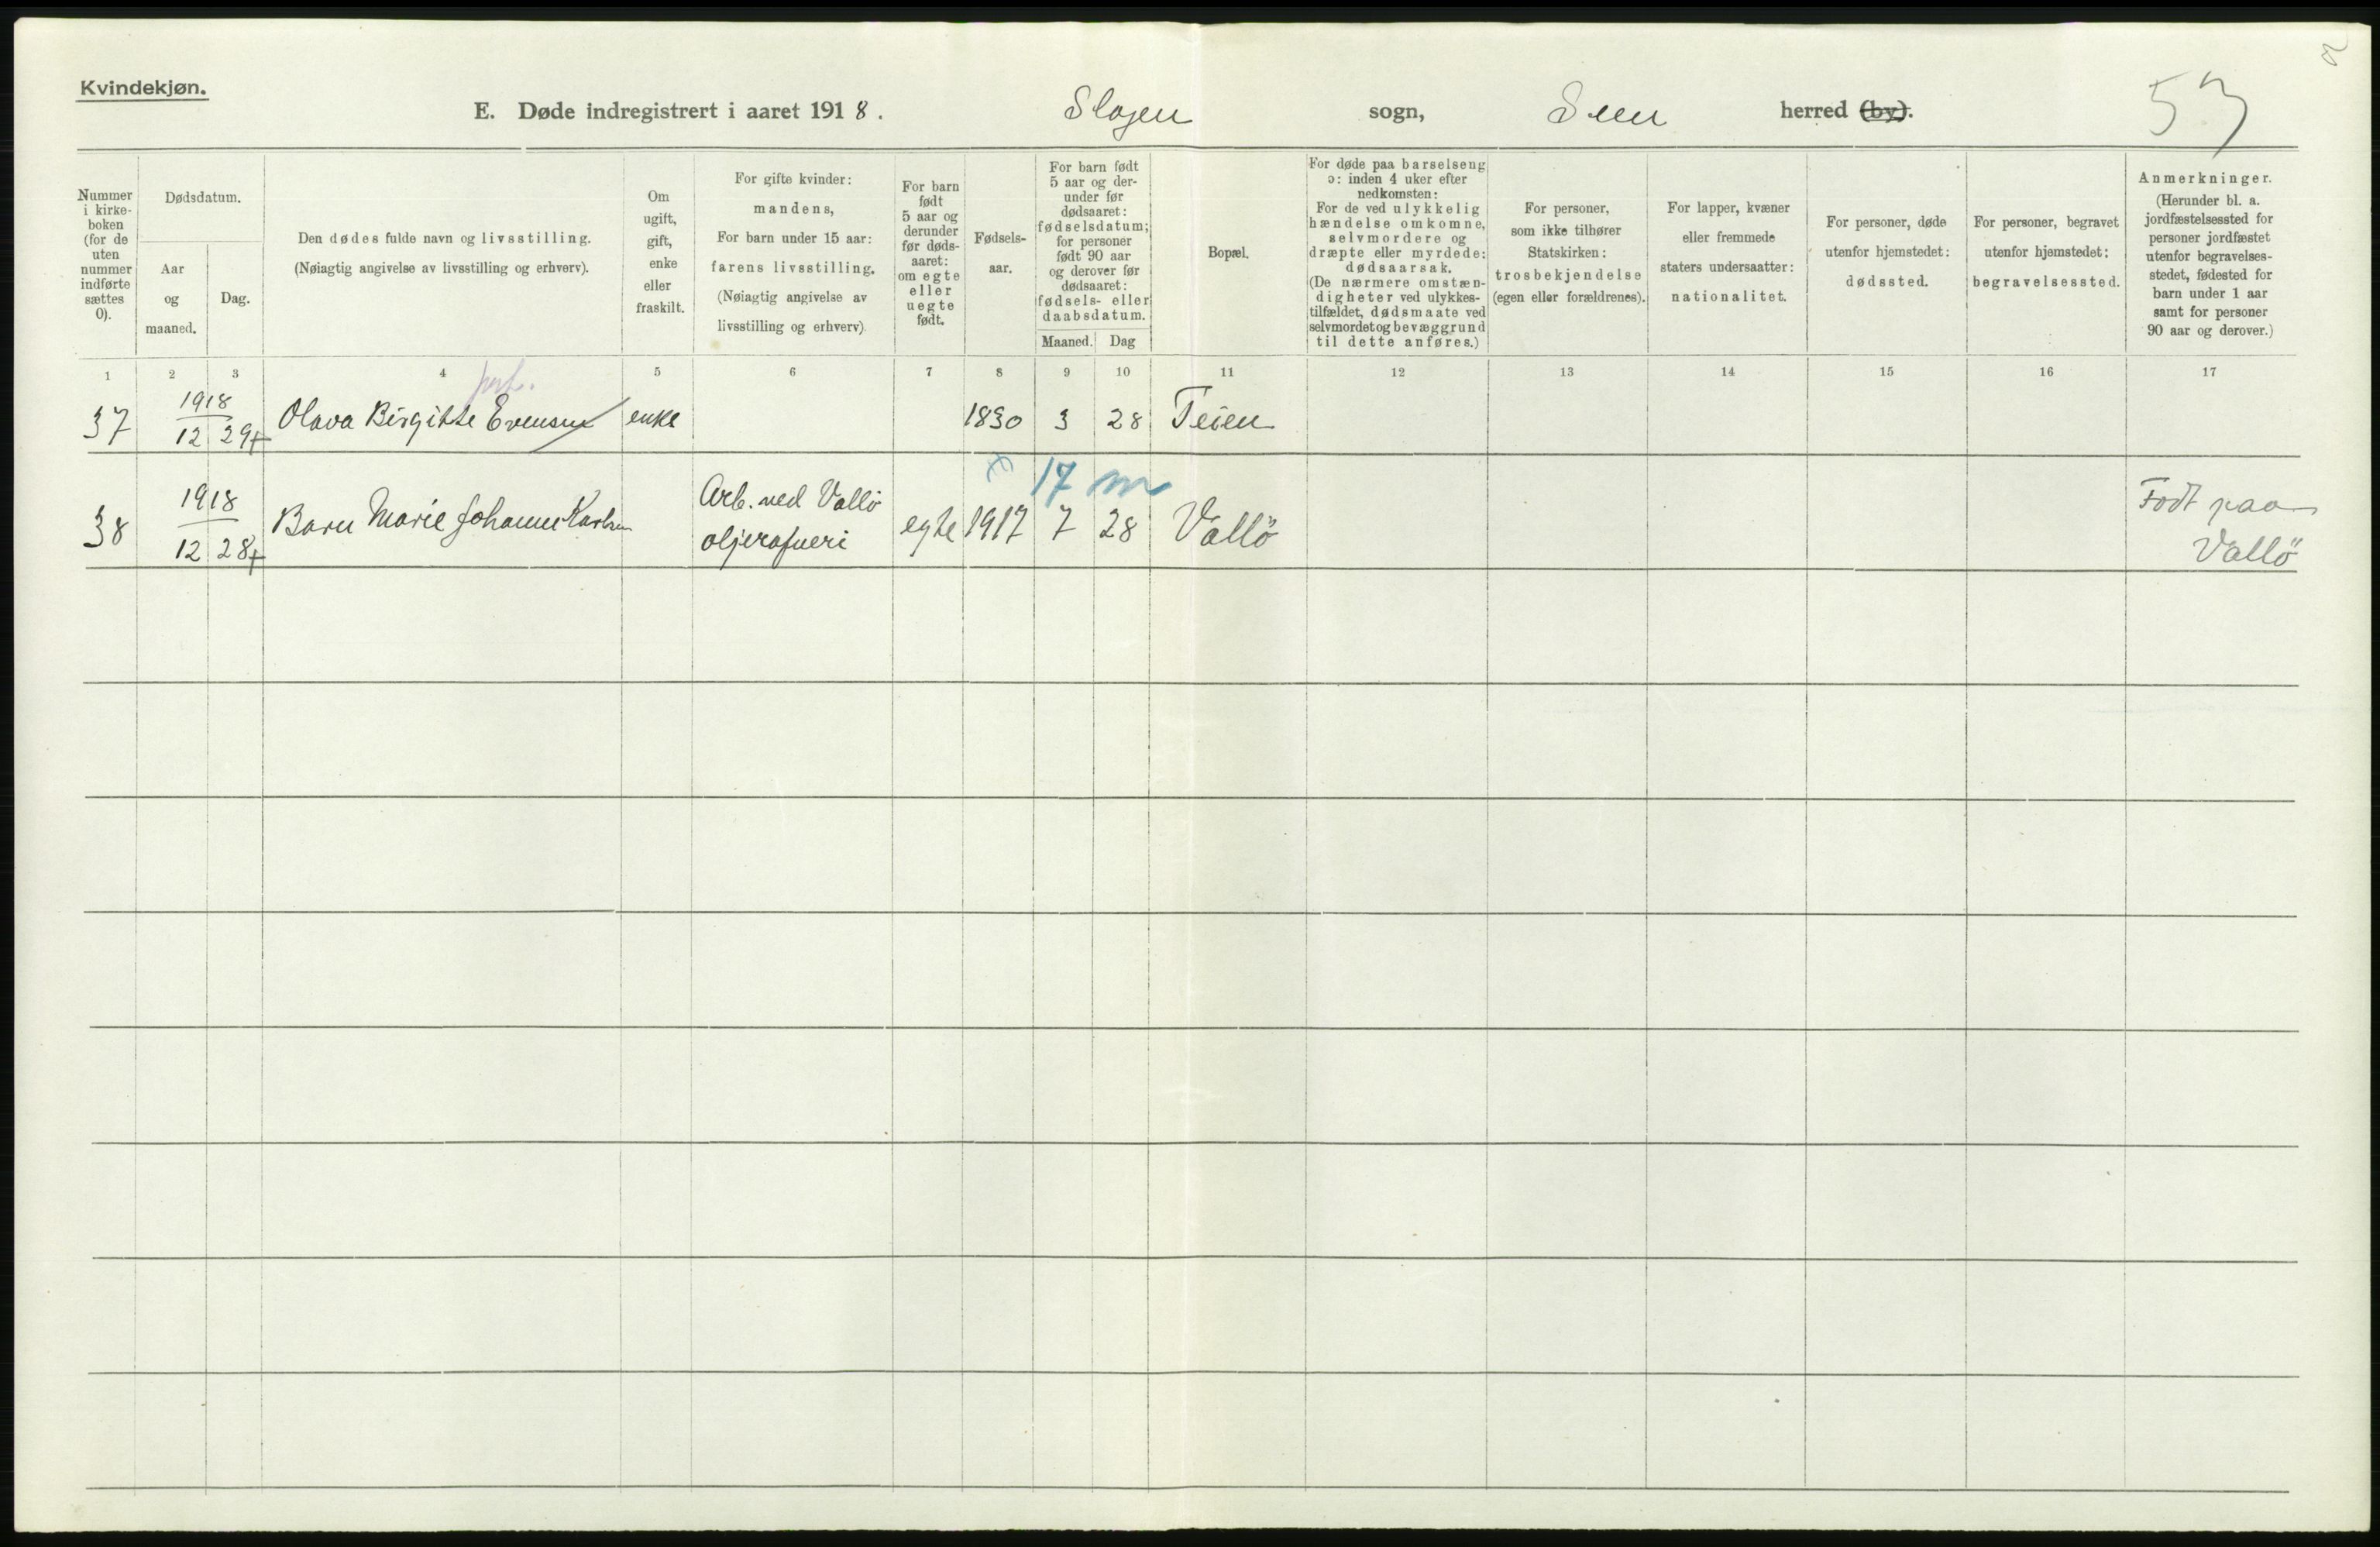 Kvindekjøn.
E. Døde indregistrert i aaret 1918. Slagen sogn, Sem herred (by).
53
Nummer i kirke-boken (for de uten nummer indførte sættes 0).
Dødsdatum.
Aar og maaned.
Dag.
Den dødes fulde navn og livsstilling.
(Nøiagtig angivelse av livsstilling og erhverv).
Om ugift, gift, enke eller fraskilt.
For gifte kvinder:
mandens,
For barn under 15 aar:
farens livsstilling.
(Nøiagtig angivelse av
livsstilling og erhverv)
For barn født 5 aar og derunder før døds-aaret: om egte eller uegte født.
Fødsels-aar.
For barn født
5 aar og der-
under før
dødsaaret:
fødselsdatum;
for personer
født 90 aar
og derover før
dødsaaret:
fødsels- eller
daabsdatum.
Maaned. Dag
Bopæl.
For døde paa barselseng
ɔ: inden 4 uker efter
nedkomsten:
For de ved ulykkelig
hændelse omkomne,
selvmordere og
dræpte eller myrdede:
dødsaarsak.
(De nærmere omstæn-
digheter ved ulykkes-
tilfældet, dødsmaate ved
selvmordet og bevæggrund
til dette anføres.)
For personer,
som ikke tilhører
Statskirken:
trosbekjendelse
(egen eller forældrenes).
For lapper, kvæner
eller fremmede
staters undersaatter:
nationalitet.
For personer, døde
utenfor hjemstedet:
dødssted.
For personer, begravet
utenfor hjemstedet:
begravelsessted.
Anmerkninger.
(Herunder bl. a.
jordfæstelsessted for
personer jordfæstet
utenfor begravelses-
stedet, fødested for
barn under 1 aar
samt for personer
90 aar og derover.)
1 2 3 4 5 6 7 8 9 10 11 12 13 14 15 16 17
37 1918 12 29+ Olava Birgitte Evensen enke 1830 3 28 Teien
17 m
38 1918 12 28+ Barn Marie Johanne Karlsen Arb. ved Vallö oljerafineri egte 1917 7 28 Vallö Födt paa Vallö